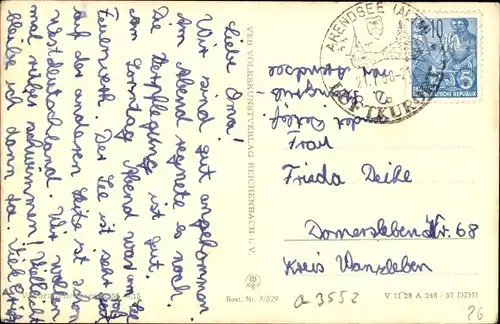 Liebe Oma!
Wir sind gut angekommen.
Am Abend regnete es noch.
Die Verpflegung ist gut.
Am Sonntag Abend war ein
Feuerwerk. Der See ist sehr
Auf der anderen Seite ist schon
Westdeutschland. Wir wollen
mal rüber schwimmen! Vielleicht
bleibe ich dann da.
VEB VOLKSKUNSTVERLAG REICHENBACH i. V.
Best. Nr. F/829
ARENDSEE (ALTM)
LUFTKURORT
10
DEUTSCHE DEMOKRATISCHE REPUBLIK
Arendsee
Frau
Frieda Deike
Domersleben Nr. 68
Kreis Wanzleben
V 11 28 A 248 / 57 DDR
a 3552
26